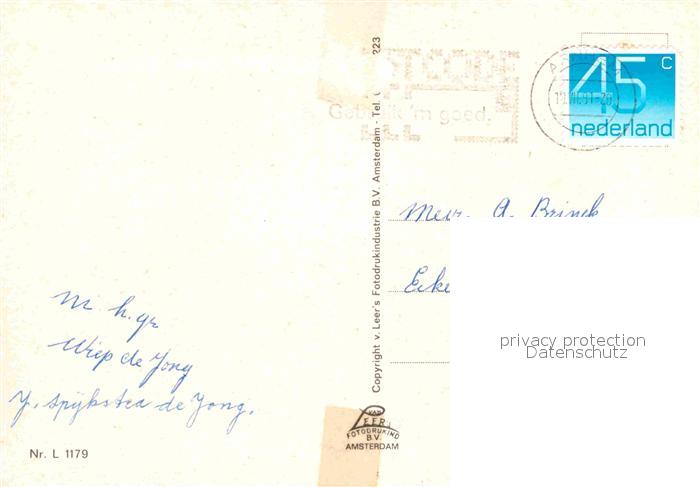 45 C
nederland
POSTCODE
Gebruik 'm goed.
Copyright v. Leer's Fotodrukindustrie B.V. Amsterdam - Tel. 223
Mevr. A. Brinck
Eeke
privacy protection
Datenschutz
m. h. gr
Wiep de Jong
Y. Spijkstra de Jong.
VAN
LEER
FOTODRUKIND
B.V.
AMSTERDAM
Nr. L 1179